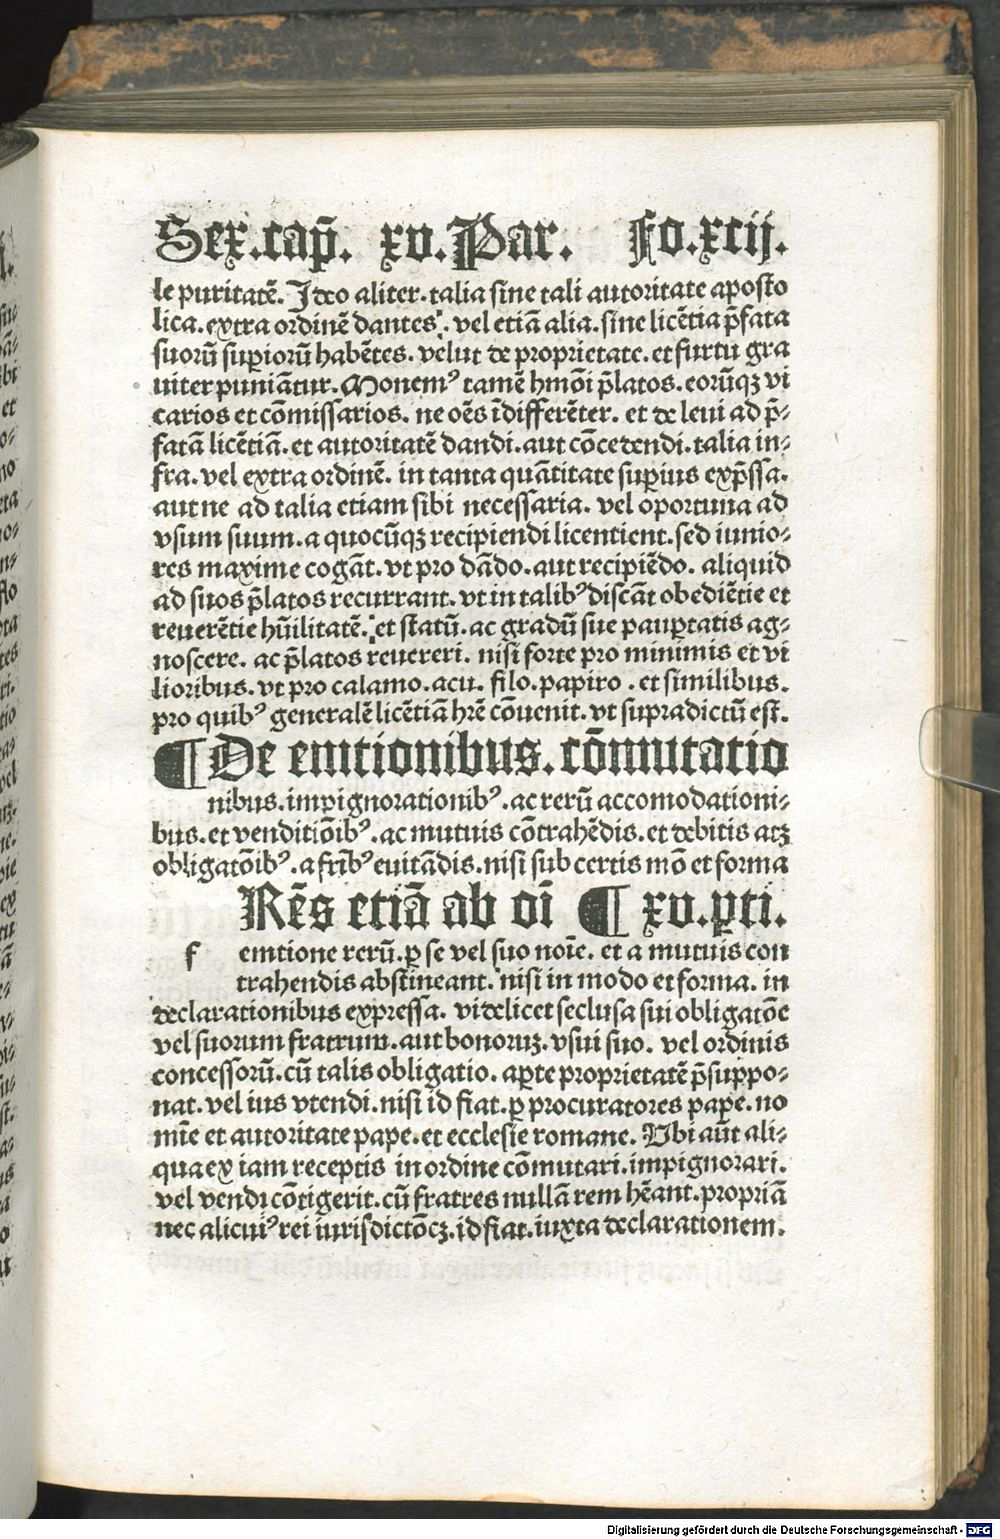 Sex.cap̄. xv. Par. Fo.xcij.
le puritatē. Ideo aliter. talia sine tali autoritate aposto
lica. extra ordinē dantes. vel etiā alia. sine licētia p̄fata
suorū superiorū habētes. velut de proprietate. et furtu gra
uiter puniātur. Monemꝰ tamē hmōi p̄latos. eorūqꝫ vi
carios et cōmissarios. ne oēs īdifferēter. et de leui ad p̄⸗
fatā licētiā. et autoritatē dandi. aut cōcedendi. talia in⸗
fra. vel extra ordinē. in tanta quātitate suꝑius exp̄ssa.
aut ne ad talia etiam sibi necessaria. vel oportuna ad
vsum suum. a quocūqꝫ recipiendi licentient. sed iunio⸗
res maxime cogāt. vt pro dādo. aut recipiēdo. aliquid
ad suos p̄latos recurrant. vt in talibꝰ discāt obediētie et
reuerētie hūilitatē. et statū. ac gradū sue pauꝑtatis ag⸗
noscere. ac p̄latos reuereri. nisi forte pro minimis et vi
lioribus. vt pro calamo. acu. filo. papiro. et similibus.
pro quibꝰ generalē licētiā hrē cōuenit. vt supradictū est.
¶ De emtionibus. cōmutatio
nibus. impignorationibꝰ. ac rerū accomodationi⸗
bus. et venditiōibꝰ. ac mutuis cōtrahēdis. et debitis atꝫ
obligatōibꝰ. a fr̄ibꝰ euitādis. nisi sub certis mō et forma
Rēs etiā ab oī ¶ xv. ꝑti.
f emtione rerū. ꝑ se vel suo noīe. et a mutuis con
trahendis abstineant. nisi in modo et forma. in
declarationibus expressa. videlicet seclusa sui obligatōe
vel suorum fratrum. aut bonoruꝫ. vsui suo. vel ordinis
concessorū. cū talis obligatio. aꝑte proprietatē p̄suppo⸗
nat. vel ius vtendi. nisi id fiat. ꝑ procuratores pape. no
mīe et autoritate pape. et ecclesie romane. Vbi aūt ali⸗
qua ex iam receptis in ordine cōmutari. impignorari.
vel vendi cōtigerit. cū fratres nullā rem hēant. propriā
nec alicuiꝰ rei iurisdictōeꝫ. id fiat. iuxta declarationem.
Digitalisierung gefördert durch die Deutsche Forschungsgemeinschaft - DFG